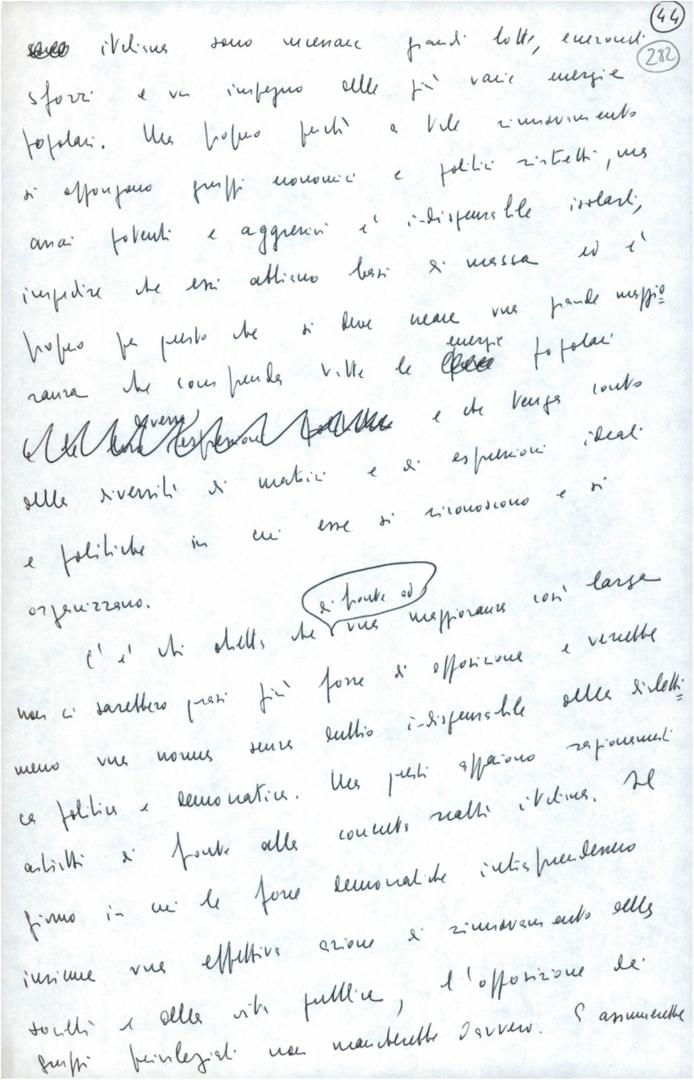 44
282
italiana sono necessarie grandi lotte, enormi
sforzi e un impegno delle più varie energie
popolari. Ma proprio perché a tale rinnovamento
si oppongono gruppi economici e politici ristretti, ma
assai potenti e aggressivi è indispensabile isolarli,
impedire che essi abbiano basi di massa ed è
proprio per questo che si deve creare una grande maggio=
ranza che comprenda tutte le energie popolari
e che tenga conto
della diversità di matrici e di espressioni ideali
e politiche in cui esse si riconoscono e si
organizzano.
C'è chi obietta che di fronte ad una maggioranza così larga
non ci sarebbero quasi più forze di opposizione e verrebbe
meno una norma senza dubbio indispensabile della dialetti=
ca politica e democratica. Ma questi appaiono ragionamenti
astratti di fronte alla concreta realtà italiana. Il
giorno in cui le forze democratiche intraprendessero
insieme una effettiva azione di rinnovamento della
società e della vita pubblica, l'opposizione dei
gruppi privilegiati non mancherebbe davvero. E assumerebbe